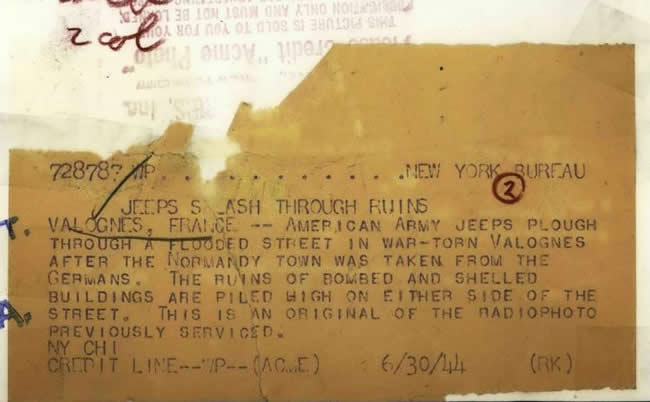 2 col
PUBLICATION ONLY AND MUST NOT BE LOANED
THIS PICTURE IS SOLD TO YOU FOR YOUR
Please Credit "Acme Photo"
Inc.
72878? WP . . . . . . . . . . . .NEW YORK BUREAU
2
JEEPS SPLASH THROUGH RUINS
T. VALOGNES, FRANCE -- AMERICAN ARMY JEEPS PLOUGH
THROUGH A FLOODED STREET IN WAR-TORN VALOGNES
AFTER THE NORMANDY TOWN WAS TAKEN FROM THE
GERMANS. THE RUINS OF BOMBED AND SHELLED
BUILDINGS ARE PILED HIGH ON EITHER SIDE OF THE
A. STREET. THIS IS AN ORIGINAL OF THE RADIOPHOTO
PREVIOUSLY SERVICED.
NY CHI
CREDIT LINE--WP--(ACME) 6/30/44 (RK)